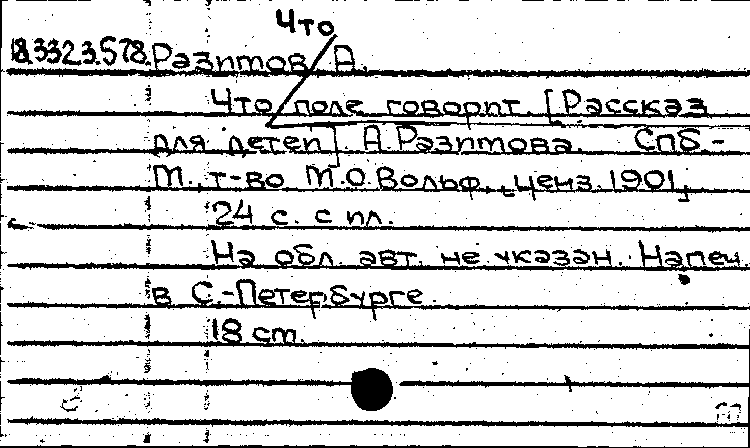 Что
18.332.3.578. Разитов А.
Что поле говорит. [Рассказ
для детей] А. Разитова. Спб.-
М., т-во М.О. Вольф, ценз. 1901,
24 с. с ил.
На обл. авт. не указан. Напеч.
в С.-Петербурге.
18 см.